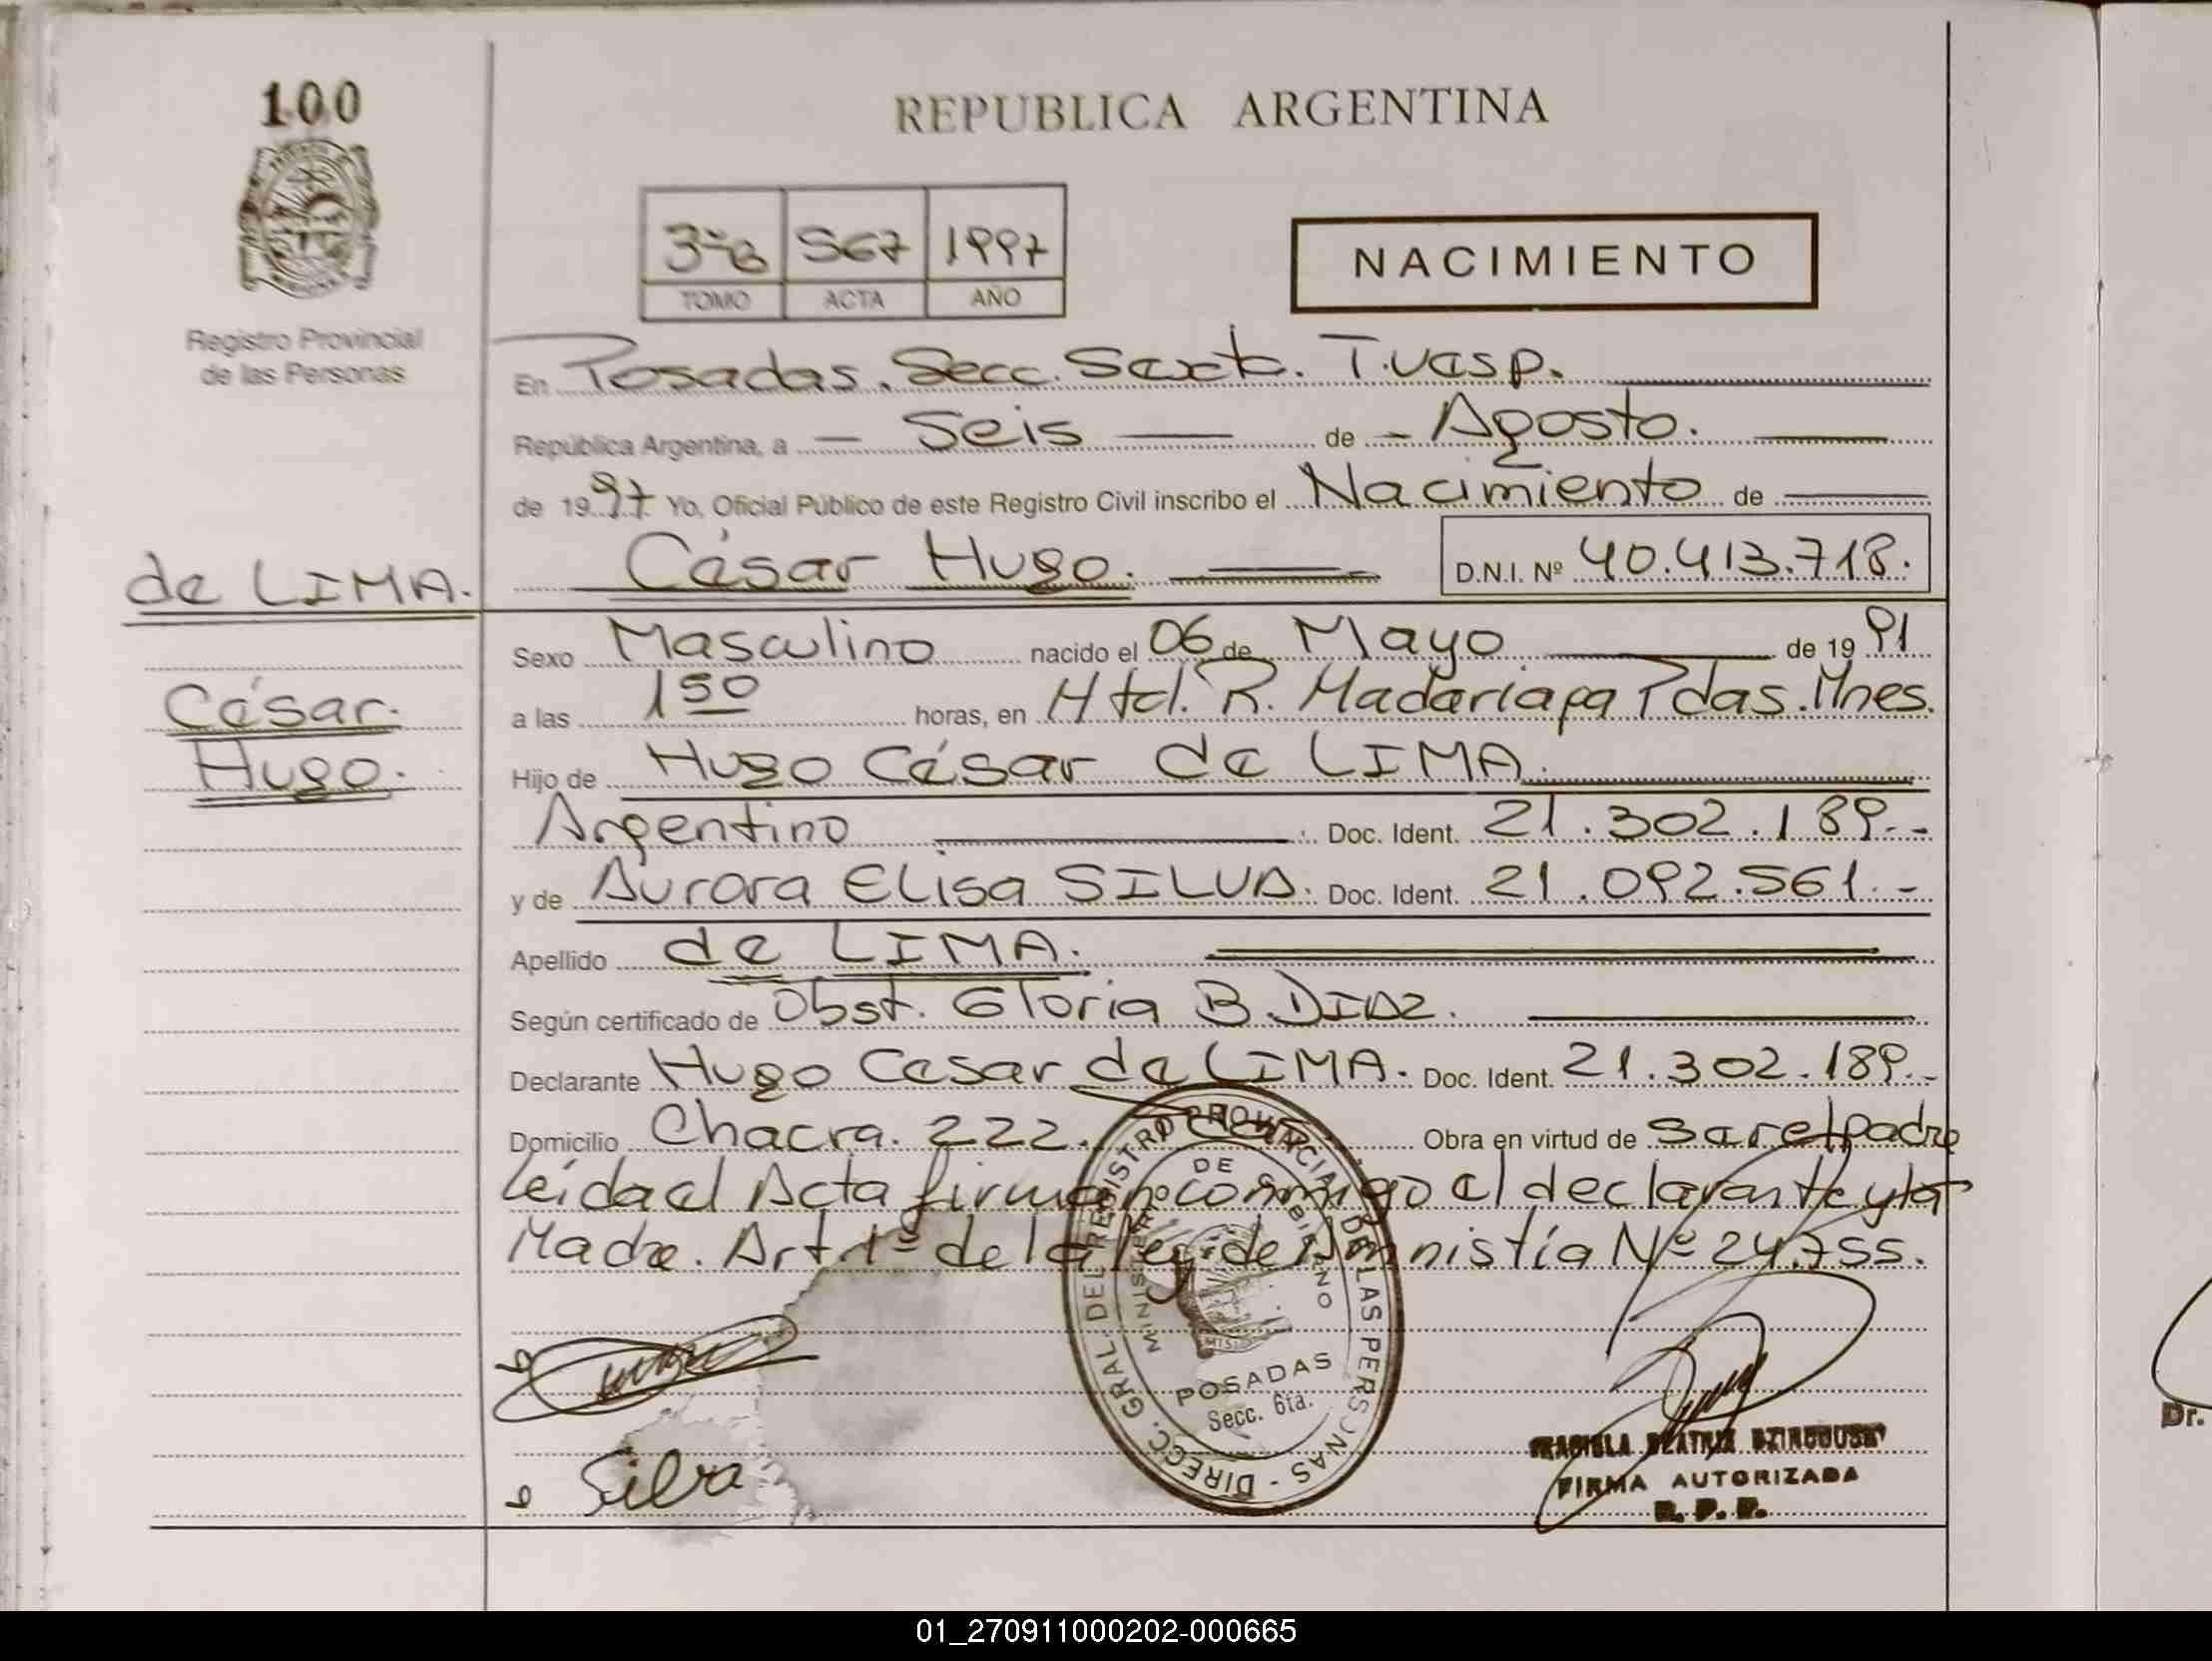 100
REPUBLICA ARGENTINA
3ºB 567 1997
TOMO ACTA AÑO
NACIMIENTO
Registro Provincial
de las Personas
En Posadas. Secc. Sexta. T.vesp.
República Argentina, a - Seis - de - Agosto.
de 1997 Yo, Oficial Público de este Registro Civil inscribo el Nacimiento de
César Hugo. D.N.I. Nº 40.413.718.
de LIMA.
César.
Hugo.
Sexo Masculino nacido el 06 de Mayo de 1991
a las 1 50 horas, en Htal. R. Madariaga Pdas. Mnes.
Hijo de Hugo César de LIMA.
Argentino Doc. Ident. 21.302.189.-
y de Aurora Elisa SILVA. Doc. Ident. 21.092.561.-
Apellido de LIMA.
Según certificado de Obst. Gloria B. DIAZ.
Declarante Hugo Cesar de LIMA. Doc. Ident. 21.302.189.-
Domicilio Chacra. 222. Obra en virtud de ser el padre
Leída el Acta firman conmigo el declarante y la
Madre. Art. 1º de la Ley de Amnistía Nº 24.755.
DIRECC. GRAL. DEL REGISTRO PROVINCIAL DE LAS PERSONAS -
MINISTERIO DE GOBIERNO
POSADAS
Secc. 6ta.
Silva
BEATRIZ
FIRMA AUTORIZADA
R. P. P.
Dr.
01_270911000202-000665